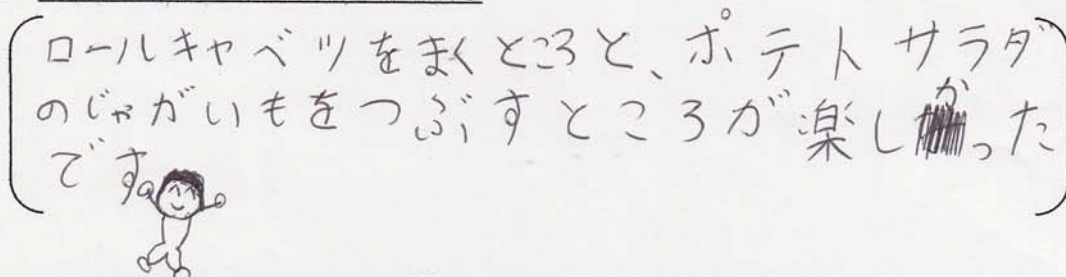 ロールキャベツをまくところと、ポテトサラダ
のじゃがいもをつぶすところが楽しかった
です。